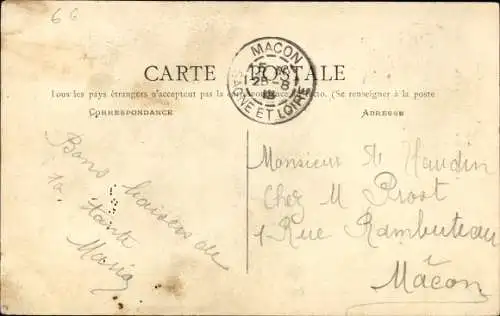 66
CARTE POSTALE
Tous les pays étrangers n'acceptent pas la correspondance au recto. (Se renseigner à la poste
CORRESPONDANCE
ADRESSE
MACON
25-8
SAONE ET LOIRE
Bons baisers de
ta tante
Maria
Monsieur
Chez M Prost
1 Rue Rambuteau
Mâcon